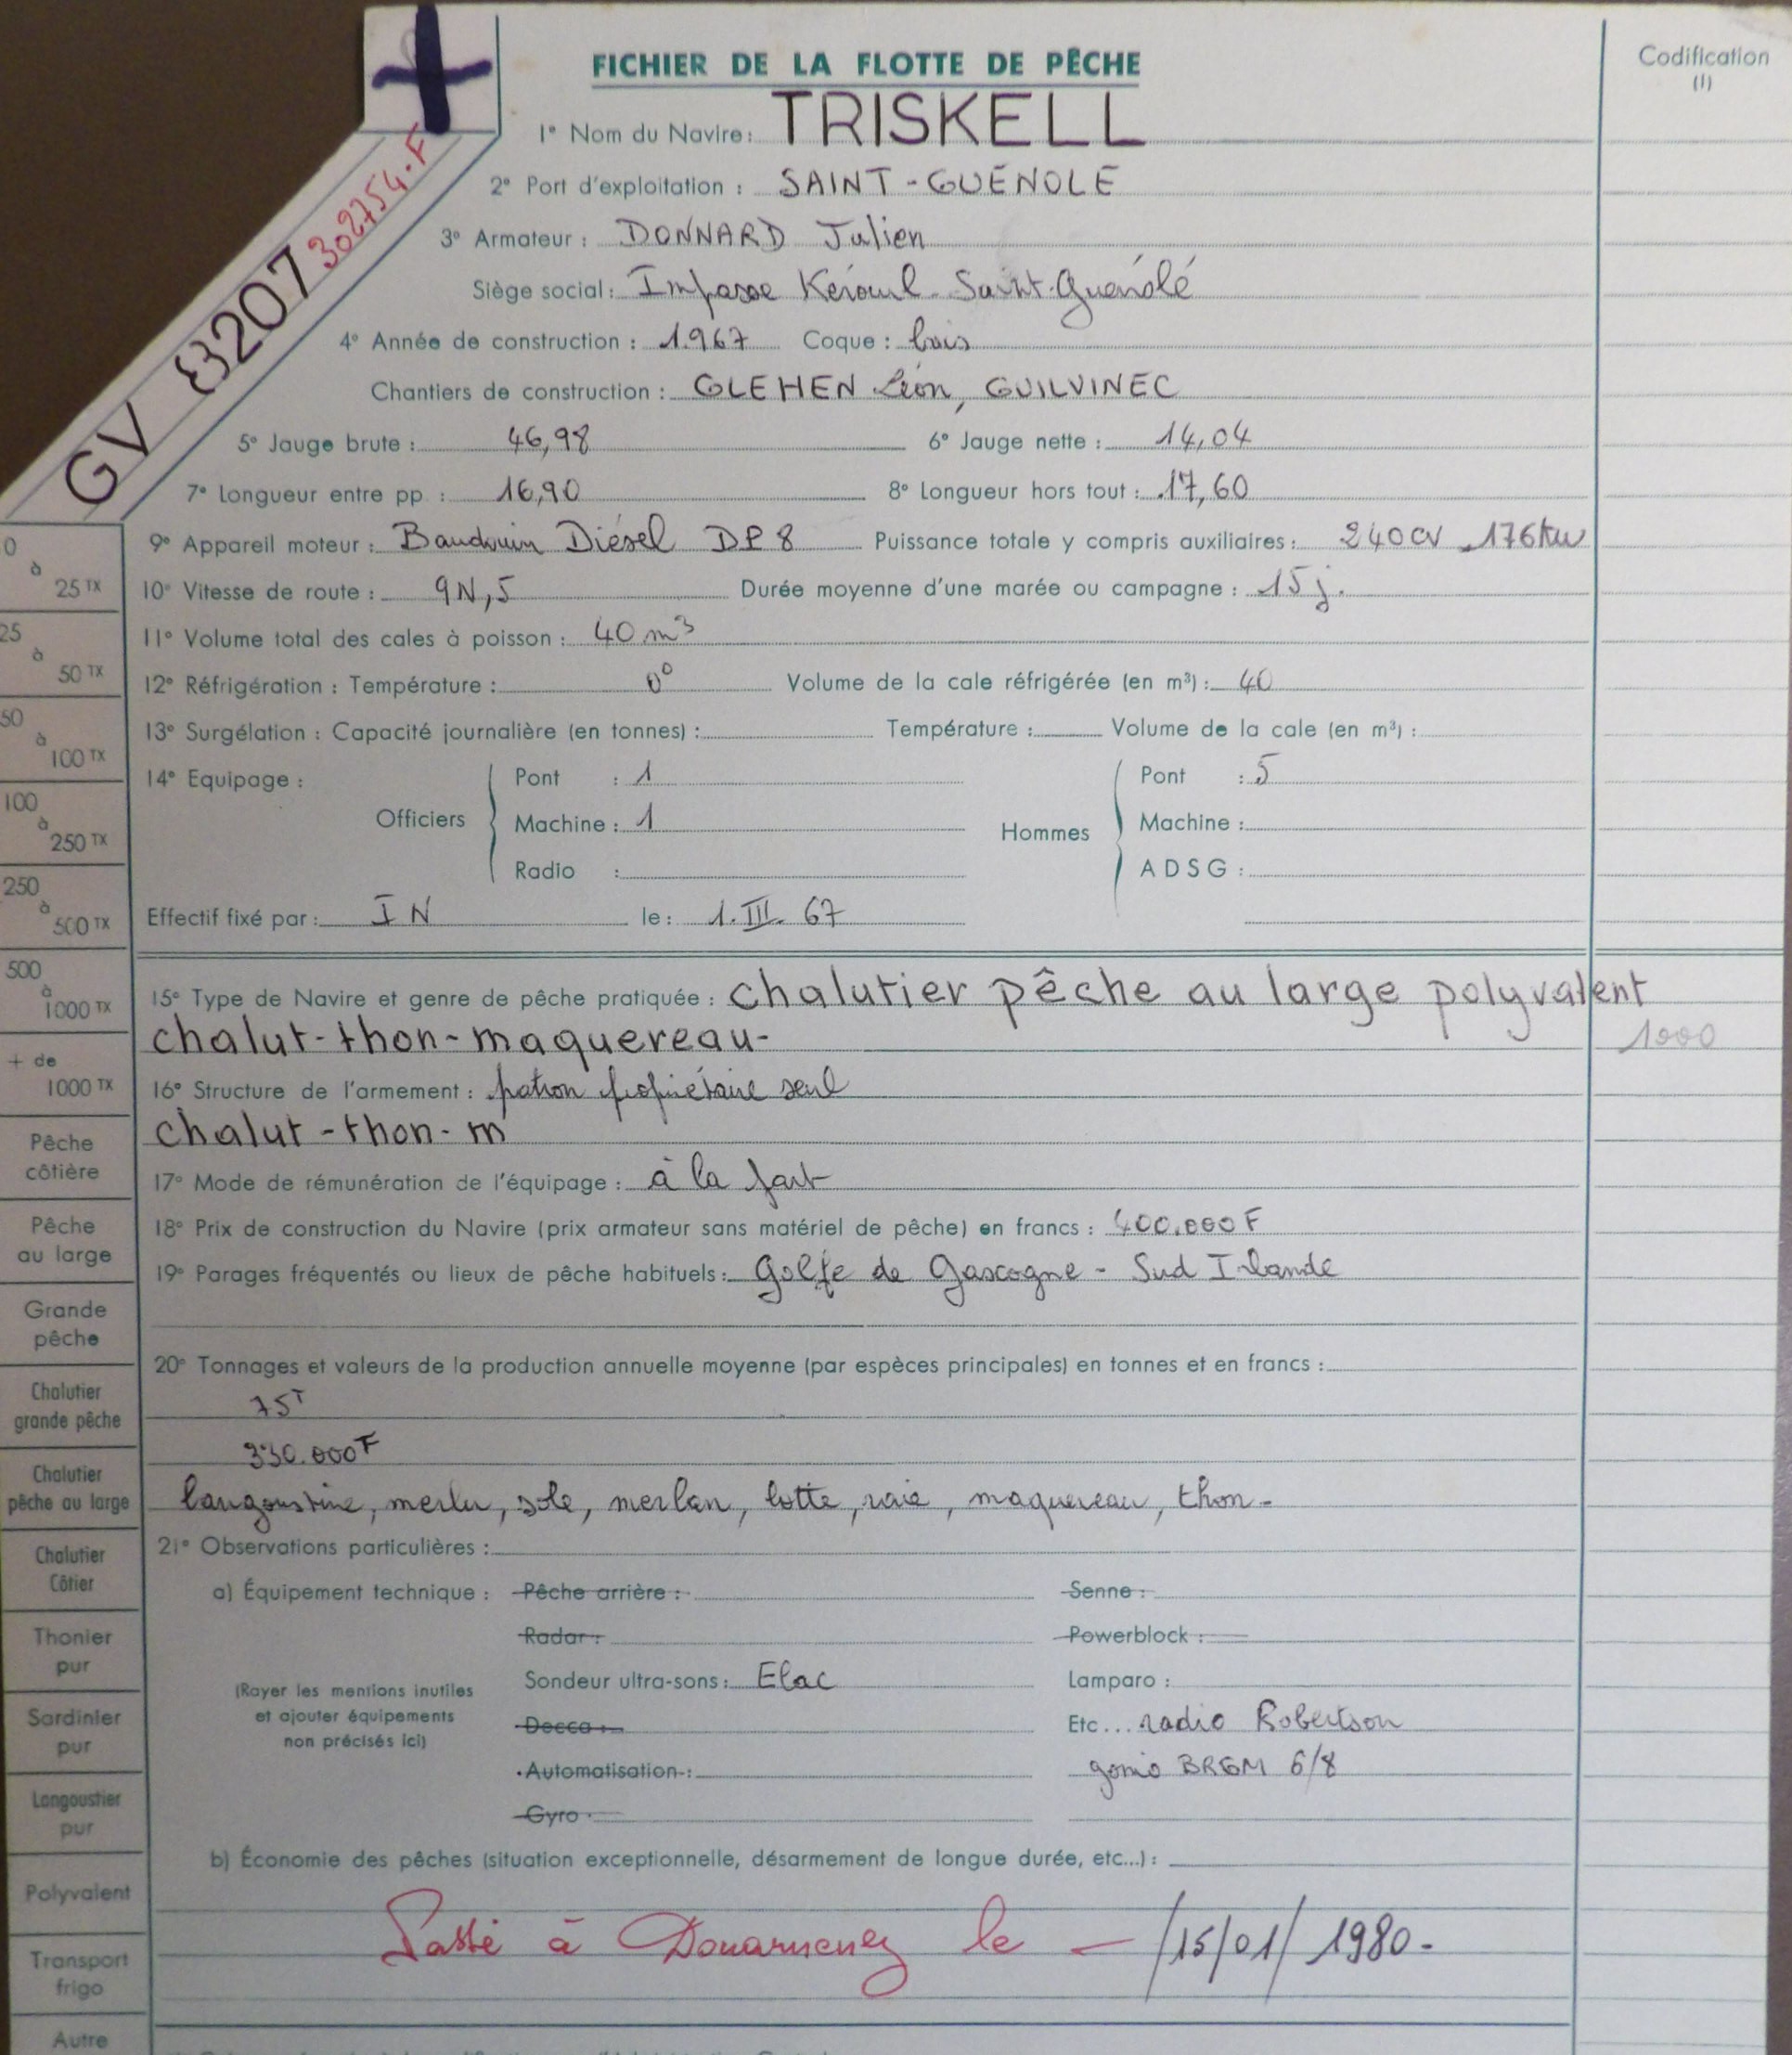 FICHIER DE LA FLOTTE DE PÊCHE
Codification
(1)
GV 8207 302754.F
1° Nom du Navire : TRISKELL
2° Port d'exploitation : SAINT-GUÉNOLÉ
3° Armateur : DONNARD Julien
Siège social : Impasse Kéroul - Saint-Guénolé
4° Année de construction : 1.967 Coque : bois
Chantiers de construction : GLEHEN Léon, GUILVINEC
5° Jauge brute : 46,98 6° Jauge nette : 14,04
7° Longueur entre pp : 16,90 8° Longueur hors tout : 17,60
9° Appareil moteur : Baudouin Diésel DP 8 Puissance totale y compris auxiliaires : 240 CV - 176 KW
10° Vitesse de route : 9N,5 Durée moyenne d'une marée ou campagne : 15 j.
11° Volume total des cales à poisson : 40 m3
12° Réfrigération : Température : 0° Volume de la cale réfrigérée (en m³) : 40
13° Surgélation : Capacité journalière (en tonnes) : Température : Volume de la cale (en m³) :
14° Equipage :
Officiers
Pont : 1
Machine : 1
Radio :
Hommes
Pont : 5
Machine :
A D S G :
Effectif fixé par : IN le : 1. III. 67
15° Type de Navire et genre de pêche pratiquée : chalutier pêche au large polyvalent
chalut-thon-maquereau-
1000
16° Structure de l'armement : patron propriétaire seul
chalut-thon-m
17° Mode de rémunération de l'équipage : à la part
18° Prix de construction du Navire (prix armateur sans matériel de pêche) en francs : 400.000 F
19° Parages fréquentés ou lieux de pêche habituels : Golfe de Gascogne - Sud Irlande
20° Tonnages et valeurs de la production annuelle moyenne (par espèces principales) en tonnes et en francs :
75T
330.000F
langoustine, merlu, sole, merlan, lotte, raie, maquereau, thon-
21° Observations particulières :
a) Équipement technique : Pêche arrière : Senne :
Radar : Powerblock :
Sondeur ultra-sons : Elac Lamparo :
(Rayer les mentions inutiles
et ajouter équipements
non précisés ici)
Decca : Etc... radio Robertson
Automatisation : gonio BRGM 6/8
Gyro
b) Économie des pêches (situation exceptionnelle, désarmement de longue durée, etc...) :
Passé à Douarnenez le - /15/01/ 1980-
0
à
25 TX
25
à
50 TX
50
à
100 TX
100
à
250 TX
250
à
500 TX
500
à
1000 TX
+ de
1000 TX
Pêche
côtière
Pêche
au large
Grande
pêche
Chalutier
grande pêche
Chalutier
pêche au large
Chalutier
Côtier
Thonier
pur
Sardinier
pur
Langoustier
pur
Polyvalent
Transport
frigo
Autre